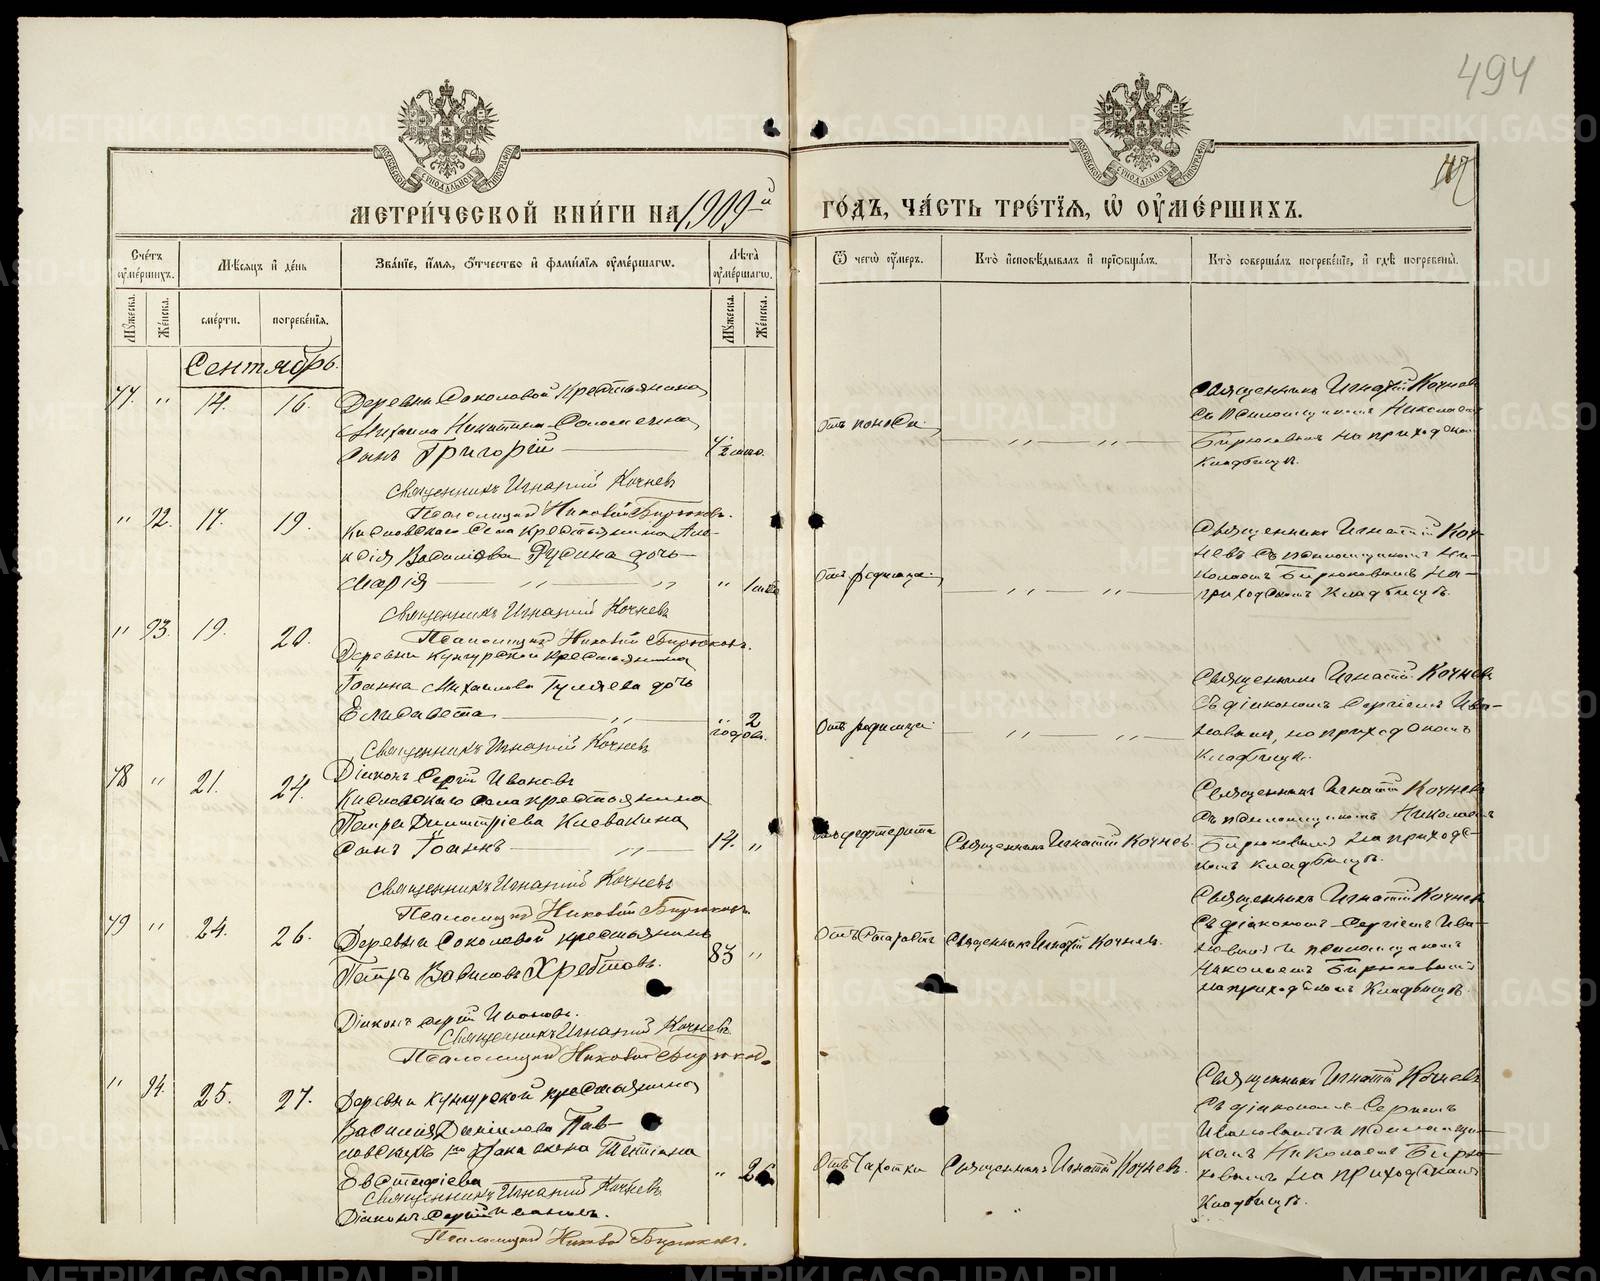 494
МЕТРИ́ЧЕСКОЙ КНИ́ГИ НА 1909й ГО́ДЪ, ЧА́СТЬ ТРЕ́ТЇѦ, Ѽ ОУ҆МЕ́РШИХЪ.
Сче́тъ оу҆ме́ршихъ.
Мѣ́сяцъ и҆ де́нь
Зва́нїе, и҆́мя, ѻ҆́тчество и҆ фами́лїя оу҆ме́ршагѡ.
Лѣ́та оу҆ме́ршагѡ.
Ѿ чегѡ̀ оу҆́меръ.
Кто̀ и҆сповѣ́дывалъ и҆ прїѡбща́лъ.
Кто̀ соверша́лъ погребе́нїе, и҆ гдѣ̀ погребены̀.
Мꙋ́жеска.
Же́нска.
сме́рти.
погребе́нїя.
Мꙋ́жеска.
Же́нска.
Сентябрь.
77 " 14. 16.
Деревни Соколовой крестьянина
Михаила Никитина Соломеина
сынъ Григорій
1/2
Отъ поноса.
Священникъ Игнатій Кочневъ
съ псаломщикомъ Николаемъ
Бирюковымъ на приходскомъ
кладбищѣ.
Священникъ Игнатій Кочнев
Псаломщикъ Николай Бирюковъ.
" 92. 17. 19.
Кисловскаго села крестьянина Але-
ксія Василіева Русина дочь
Марія
" 1
Отъ родимца.
Священникъ Игнатій Коч-
невъ съ псаломщикомъ Ни-
колаемъ Бирюковымъ на
приходскомъ кладбищѣ.
Священникъ Игнатій Кочневъ
Псаломщикъ Николай Бирюковъ.
" 93. 19. 20.
Деревни Кунгурской крестьянина
Іоанна Михаилова Гуляева дочь
Елисавета
" 2 годовъ.
Отъ родимца.
Священникъ Игнатій Кочневъ
съ діакономъ Сергіемъ Ива-
новымъ, на приходскомъ
кладбищѣ.
Священникъ Игнатій Кочнев
Діаконъ Сергій Ивановъ
78 " 21. 24.
Кисловскаго села крестьянина
Петра Димитріева Клевакина
сынъ Іоаннъ
14. "
Священникъ Игнатій Кочнев.
Священникъ Игнатій Кочневъ
съ псаломщикомъ Николаемъ
Бирюковымъ на приходс-
комъ кладбищѣ.
Священникъ Игнатій Кочневъ
Псаломщикъ Николай Бирюковъ.
79 " 24. 26.
Деревни Соколовой крестьянинъ
Петръ Вавиловъ Хребтовъ.
83 "
Отъ старости
Священникъ Игнатій Кочнев.
Священникъ Игнатій Кочнев
съ діакономъ Сергіемъ Ива-
новымъ и псаломщикомъ
Николаемъ Бирюковымъ
на приходскомъ кладбищѣ.
Діаконъ Сергій Ивановъ.
Священникъ Игнатій Кочневъ
Псаломщикъ Николай Бирюков.
" 94. 25. 27.
Деревни Кунгурской крестьянина
Василія Даніилова Пав-
жена Татіана
Евстафіева
" 26
Отъ чахотки
Священникъ Игнатій Кочнев.
Священникъ Игнатій Кочневъ
съ діакономъ Сергіемъ
Ивановымъ и псаломщи-
комъ Николаемъ Бирю-
ковымъ на приходскомъ
кладбищѣ.
Священникъ Игнатій Кочневъ
Діаконъ Сергій Ивановъ.
Псаломщикъ Николай Бирюковъ.
METRIKI.GASO-URAL.RU